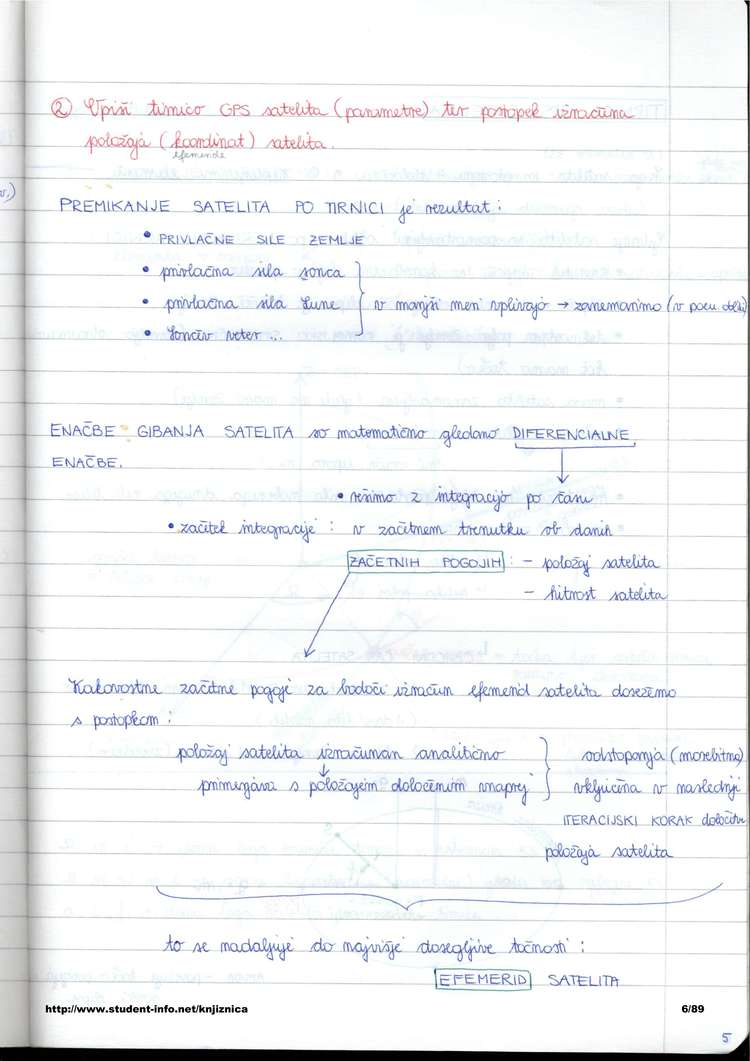 ② Upiši tirnico GPS satelita (parametre) ter postopek izračuna
položaja (koordinat) satelita.
efemeride
PREMIKANJE SATELITA PO TIRNICI je rezultat:
• PRIVLAČNE SILE ZEMLJE
• privlačna sila sonca
• privlačna sila Lune } v manjši meri vplivajo → zanemarimo (v
• Sončev veter ...
ENAČBE GIBANJA SATELITA so matematično gledano DIFERENCIALNE
ENAČBE.
• rešimo z integracijo po času
• začetek integracije: v začetnem trenutku ob danih
ZAČETNIH POGOJIH: - položaj satelita
- hitrost satelita
Kakovostne začetne pogoje za bodoči izračun efemerid satelita dosežemo
s postopkom:
položaj satelita izračunan analitično } odstopanja (morebitna)
primerjava s položajem določenim vnaprej vključena v naslednji
ITERACIJSKI KORAK določitve
položaja satelita
to se nadaljuje do najvišje dosegljive točnosti:
EFEMERID SATELITA
http://www.student-info.net/knjiznica 6/89
5